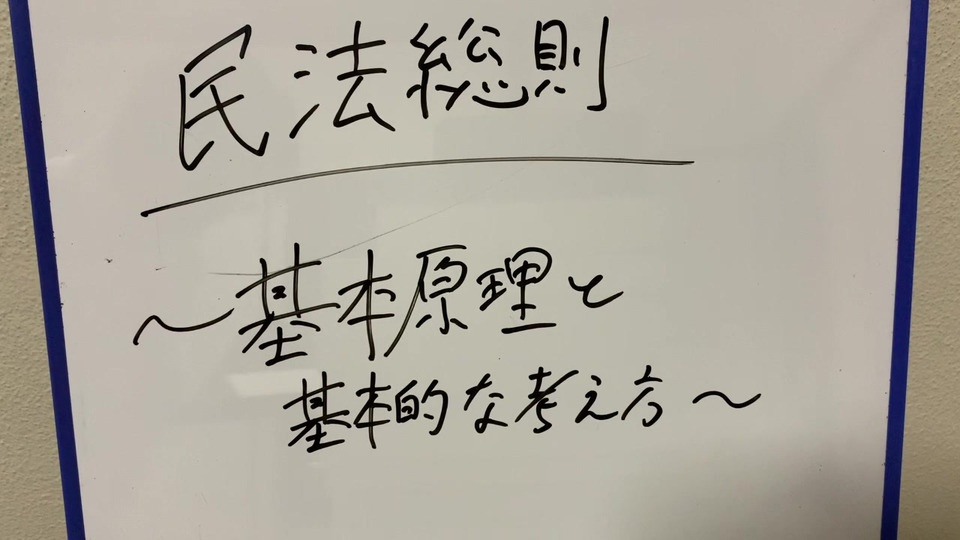 民法総則
～基本原理と
基本的な考え方～